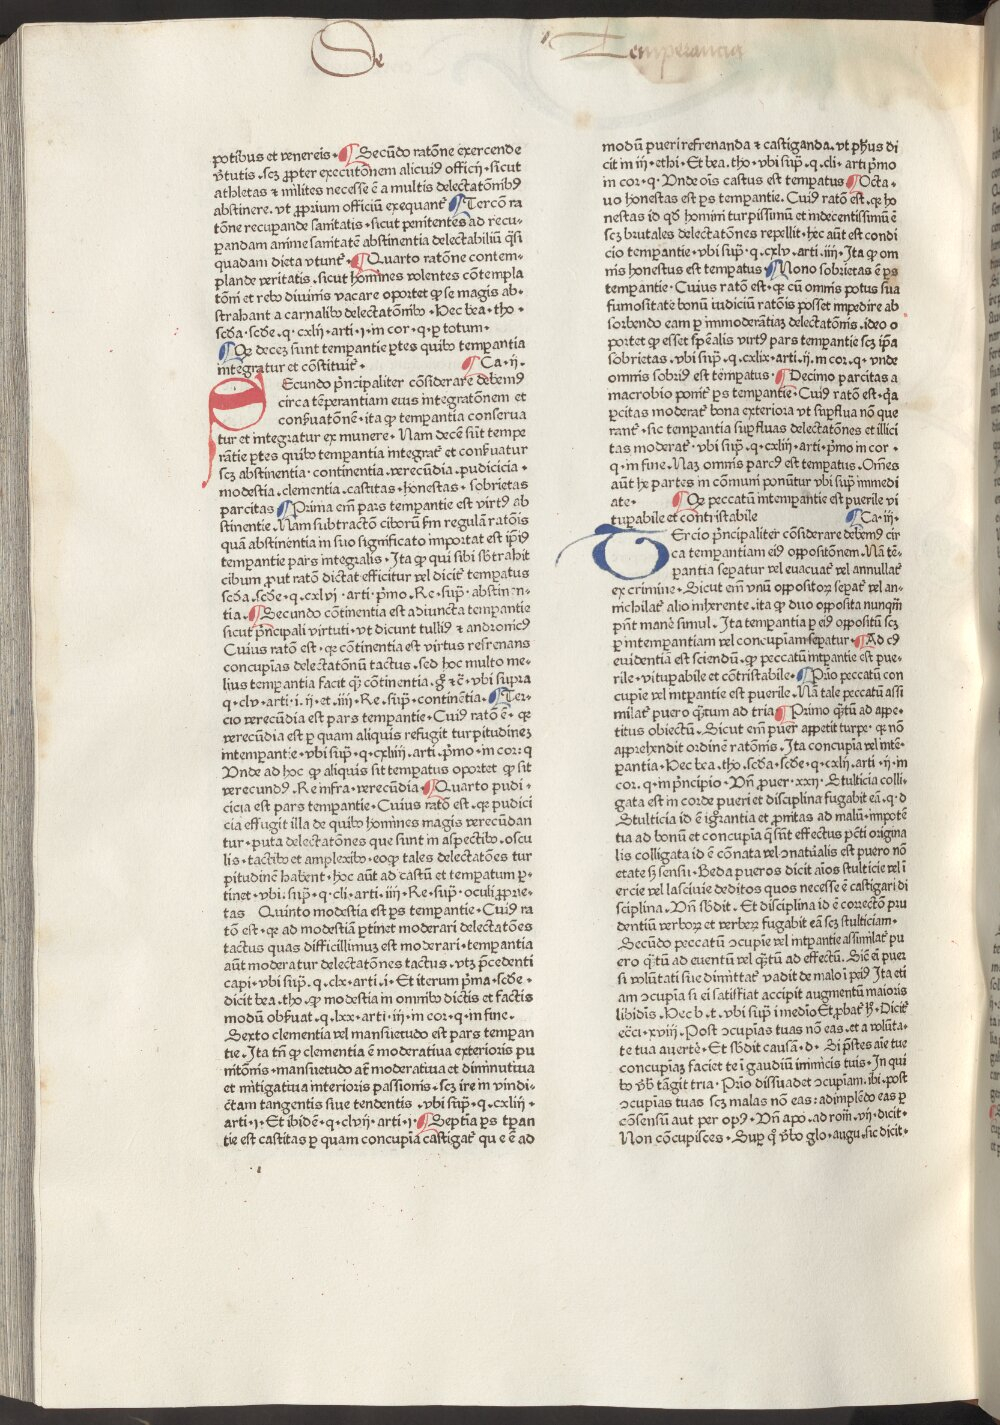 De Temperancia
potibus et venereis. Secũdo ratõne exercende
ṽtutis. scz ꝓpter executõnem alicuiꝰ officij. sicut
athletas ⁊ milites necesse ē a multis delectatõnibꝰ
abstinere. vt ꝓprium officiũ exequant᷑ Tercõ ra
tõne recuꝑande sanitatis. sicut penitentes ad recu⸗
ꝑandam anime sanitatẽ abstinentia delectabiliũ q̃si
quadam dieta vtunt᷑. Quarto ratõne contem⸗
plande veritatis. sicut homines volentes cõtempla
tõni et rebꝰ diuinis vacare oportet ꝙ se magis ab⸗
strahant a carnalibꝰ delectatõnibꝰ. Hec bea. tho.
scd̃a. scd̃e. q. cxlij. arti. i. in cor. q. ꝑ totum.
Qꝙ decez sunt temꝑantie ꝑtes quibꝰ temꝑantia
integratur et cõstituit᷑. Ca. ij.
SEcundo p̃ncipaliter cõsiderare debemꝰ
circa tẽperantiam eius integratõnem et
conẜuatõnẽ. ita ꝙ temꝑantia conserua
tur et integratur ex munere. Nam decẽ sũt tempe
rãtie ꝑtes quibꝰ temꝑantia integrat᷑ et conẜuatur
scz abstinentia. continentia. verecũdia. pudicicia.
modestia. clementia. castitas. honestas. sobrietas
parcitas Prima em̃ pars temꝑantie est virtꝰ ab
stinentie. Nam subtractõ ciborũ ẜm regulã ratõis
quã abstinentia in suo significato importat est ip̃iꝰ
temꝑantie pars integralis. Ita ꝙ qui sibi sb̃trahit
cibum ꝓut ratõ dictat efficitur vel dicit᷑ temꝑatus
scd̃a. scd̃e. q. cxlvj. arti. p̃mo. Re. sup̃. abstinen⸗
tia. Secundo cõtinentia est adiuncta temꝑantie
sicut p̃ncipali virtuti. vt dicunt tulliꝰ ⁊ andronicꝰ
Cuius ratõ est. ꝙ cõtinentia est virtus refrenans
concupĩas delectatõnũ tactus. sed hoc multo me⸗
lius temꝑantia facit q̃ cõtinentia. g̃ ⁊c̃. vbi supra
q. clv. arti. i. ij. et. iiij. Re. sup̃. continẽtia. Ter⸗
cio verecũdia est pars temꝑantie. Cuiꝰ ratõ ē. ꝙ
verecũdia est ꝑ quam aliquis refugit turpitudinez
intemꝑantie. vbi sup̃. q. cxliiij. arti. p̃mo. in cor: q
Vnde ad hoc ꝙ aliquis sit temꝑatus oportet ꝙ sit
verecundꝰ. Re infra. verecũdia. Quarto pudi⸗
cicia est pars temꝑantie. Cuius ratõ est. ꝙ pudici
cia effugit illa de quibꝰ homines magis verecũdan
tur. puta delectatõnes que sunt in aspectibꝰ. oscu
lis. tactibꝰ et amplexibꝰ. eoꝙ tales delectatões tur
pitudinẽ habent. hoc aũt ad castũ et temꝑatum ꝑ⸗
tinet. vbi. sup̃. q. cli. arti. iiij. Re. sup̃. oculi ꝓprie⸗
tas Quinto modestia est ꝑs temꝑantie. Cuiꝰ ra
tõ est. ꝙ ad modestiã ꝑtinet moderari delectatões
tactus quas difficillimuz est moderari. temꝑantia
aũt moderatur delectatõnes tactus. vtz p̃cedenti
capi. vbi sup̃. q. clx. arti. i. Et iterum p̃ma. scd̃e.
dicit bea. tho. ꝙ modestia in omnibꝰ dictis et factis
modũ obẜuat. q. lxx. arti. iij. in cor. q. in fine.
Sexto clementia vel mansuetudo est pars temꝑan
tie. Ita tñ ꝙ clementia ē moderatiua exterioris pu
nitõnis. mansuetudo at̃ moderatiua et diminutiua
et mitigatiua interioris passionis. scz ire in vindi⸗
ctam tangentis siue tendentis. vbi sup̃. q. cxliij.
arti. i. Et ibidẽ. q. clvij. arti. i. Septĩa ꝑs tẽꝑan
tie est castitas ꝑ quam concupĩa castigat᷑ que ē ad
modũ pueri refrenanda ⁊ castiganda. vt ph̃us di
cit in iij. ethi. Et bea. tho. vbi sup̃. q. cli. arti p̃mo
in cor. q. Vnde oĩs castus est temꝑatus Octa⸗
uo honestas est ꝑs temꝑantie. Cuiꝰ ratõ est. ꝙ ho
nestas id qd̃ homini turpissimũ et indecentissimũ ē
scz brutales delectatões repellit. hec aũt est condi
cio temꝑantie. vbi sup̃. q. cxlv. arti. iiij. Ita ꝙ om
nis honestus est temꝑatus. Nono sobrietas ē ꝑs
temꝑantie. Cuius ratõ est. ꝙ cũ omnis potus sua
fumositate bonũ iudiciũ ratõis posset impedire ab
sorbendo eam ꝑ immoderãtiaȝ delectatõnis. ideo o
portet ꝙ esset sp̃ealis virtꝰ pars temꝑantie scz ip̃a
sobrietas. vbi sup̃. q. cxlix. arti. ij. in cor. q. vnde
omnis sobriꝰ est temꝑatus. Decimo parcitas a
macrobio ponit᷑ ꝑs temꝑantie. Cuiꝰ ratõ est. q̃a
ꝑcitas moderat᷑ bona exteriora vt suꝑflua nõ que
rant᷑. sic temꝑantia suꝑfluas delectatõnes et illici
tas moderat᷑. vbi sup̃. q. cxliij. arti. p̃mo in cor.
q. in fine. Naȝ omnis parcꝰ est temꝑatus. Om̃es
aũt he partes in cõmuni ponũtur vbi sup̃ immedi
ate. Qꝙ peccatũ intemꝑantie est puerile vi
tuꝑabile et contristabile Ca. iij.
TErcio p̃ncipaliter cõsiderare debemꝰ cir
ca temꝑantiam eiꝰ oppositõnem. Nã tẽ⸗
ꝑantia seꝑatur vel euacuat᷑ vel annullat᷑
ex crimine. Sicut em̃ vnũ oppositoꝝ seꝑat᷑ vel an⸗
nichilat᷑ alio inherente. ita ꝙ duo opposita nunq̃m
p̃nt manẽ simul. Ita temꝑantia ꝑ eiꝰ oppositũ scz
ꝑ intemꝑantiam vel concupĩam seꝑatur. Ad cꝰ
euidentiã est sciendũ. ꝙ peccatũ intꝑantie est pue⸗
rile. vituꝑabile et cõtristabile. Prĩo peccatũ con
cupĩe vel intꝑantie est puerile. Nã tale peccatũ assi
milat᷑ puero q̃tum ad tria Primo q̃tũ ad appe⸗
titus obiectũ. Sicut em̃ puer appetit turpe. ꝙ nõ
apprehendit ordinẽ ratõnis. Ita concupĩa vel intẽ⸗
ꝑantia. Hec bea. tho. scd̃a. scd̃e. q. cxlij. arti. ij. in
cor. q. in p̃ncipio. Vñ ꝓuer. xxij. Stulticia colli⸗
gata est in corde pueri et disciplina fugabit eã. q. d
Stulticia id ē igñrantia et ꝓnitas ad malũ. impotẽ
tia ad bonũ et concupĩa q̃ sũt effectus pc̃ti origina
lis colligata id ē cõnata vel ꝯnat̃alis est puero nõ
etate ẜꝫ sensu. Beda pueros dicit aĩos stulticie vel ĩ
ercie vel lasciuie deditos quos necesse ē castigari di
sciplina. Vñ sb̃dit. Et disciplina id ē correctõ pru
dentiũ verboꝝ et verbeꝝ fugabit eã scz stulticiam.
Secũdo peccatũ ꝯcupĩe vel intꝑantie assimilat᷑ pu
ero q̃tũ ad euentũ vel q̃tũ ad effectũ. Sic̃ em̃ puer
si volũtati sue dimittat᷑ vadit de malo ĩ peiꝰ Ita eti
am ꝯcupĩa si ei satisfiat accipit augmentũ maioris
libidĩs. Hec b. t. vbi sup̃ ĩ medio Et ꝓbat᷑ h̃. Dicit᷑
ecc̃i. xviij. Post ꝯcupĩas tuas nõ eas. et a volũta⸗
te tua auertẽ. Et sb̃dit causã. d. Si p̃stes aĩe tue
concupĩaȝ faciet te ĩ gaudiũ inimicis tuis. In qui
bꝰ v̾b̾ tãgit tria. Prĩo dissuadet ꝯcupĩam. ibi. post
ꝯcupĩas tuas scz malas nõ eas: adimplẽdo eas ꝑ
cõsensũ aut per opꝰ. Vñ apo. ad rom̃. vij. dicit.
Non cõcupisces. Suꝑ q̊ v̾bo glo. augu. sic dicit.